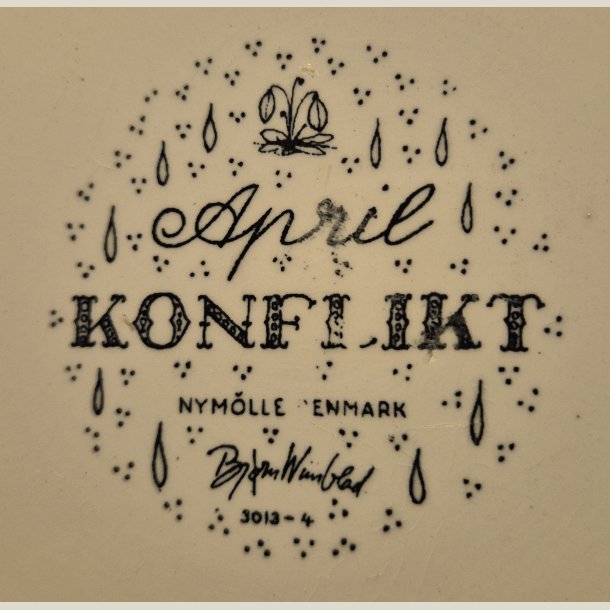 April
KONFLIKT
NYMÖLLE ENMARK
Bjørn Wiinblad
3013-4